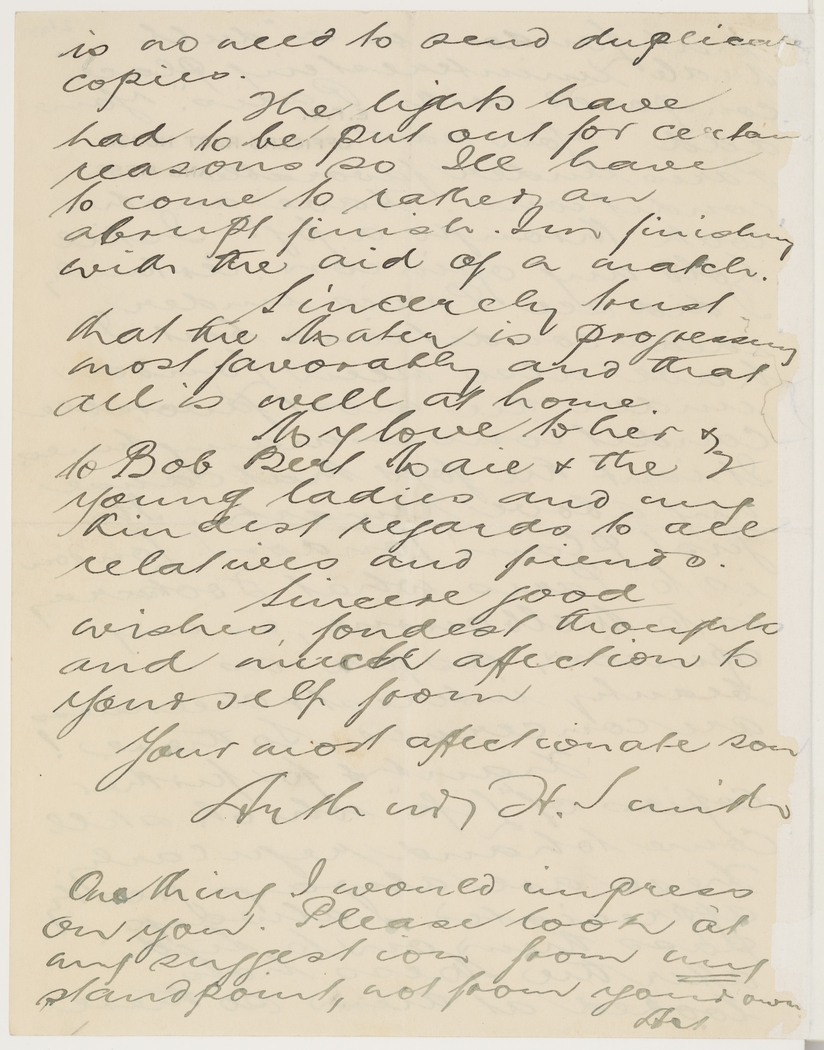 is no need to send duplicate
copies.
The lights have
had to be put out for certain
reasons so Ill have
to come to rather an
abrupt finish. Im finishing
with the aid of a match.
Sincerely trust
that the Mater is progressing
most favorably and that
all is well at home.
My love to her &
to Bob Bert Maie & the
young ladies and my
kindest regards to all
relatives and friends.
Sincere good
wishes, fondest thoughts
and much affection to
yourself from
Your most affectionate son
H. Smith
One thing I would impress
on you. Please look at
any suggestion from my
standpoint, not from your own
Art